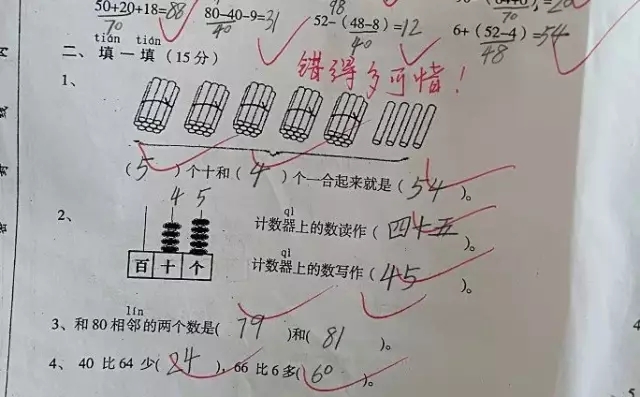 50+20+18=88 80-40-9=31 52-(48-8)=12
70 40 40 70
98 6+(52-4)=54
48
tián tián
二、填一填(15分)
错得多可惜!
1、
(5)个十和(4)个一合起来就是(54)。
4 5
2、 计数器上的数读作(四十五)。
qì
百 十 个 计数器上的数写作(45)。
qì
lín
3、和80相邻的两个数是(79)和(81)。
4、40比64少(24),66比6多(60)。